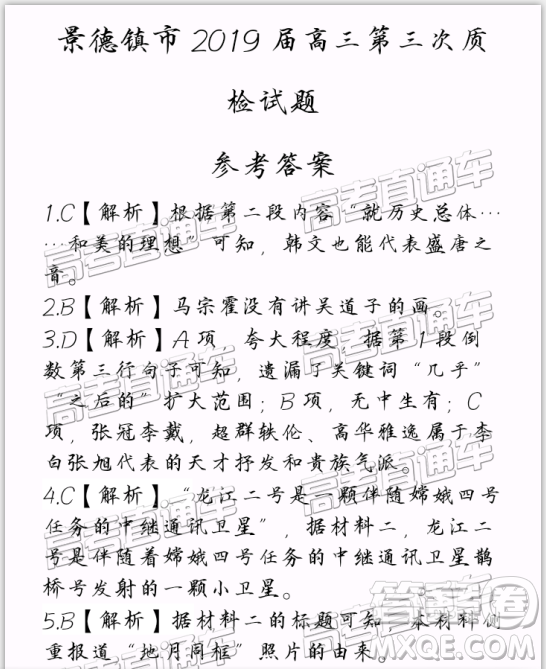 景德镇市2019届高三第三次质
检试题
参考答案
1.C【解析】根据第二段内容“就历史总体…
…和美的理想”可知，韩文也能代表盛唐之
音。
2.B【解析】马宗霍没有讲吴道子的画。
3.D【解析】A项，夸大程度，据第1段倒
数第三行句子可知，遗漏了关键词“几乎”
“之后的”扩大范围；B项，无中生有；C
项，张冠李戴，超群轶伦、高华雅逸属于李
白张旭代表的天才抒发和贵族气派。
4.C【解析】“龙江二号是一颗伴随嫦娥四号
任务的中继通讯卫星”，据材料二，龙江二
号是伴随着嫦娥四号任务的中继通讯卫星鹊
桥号发射的一颗小卫星。
5.B【解析】据材料二的标题可知，本材料侧
重报道“地月同框”照片的由来。
高考直通车
高考直通车
高考直通车
高考直通车
高考直通车
答案卷
MXQE.COM